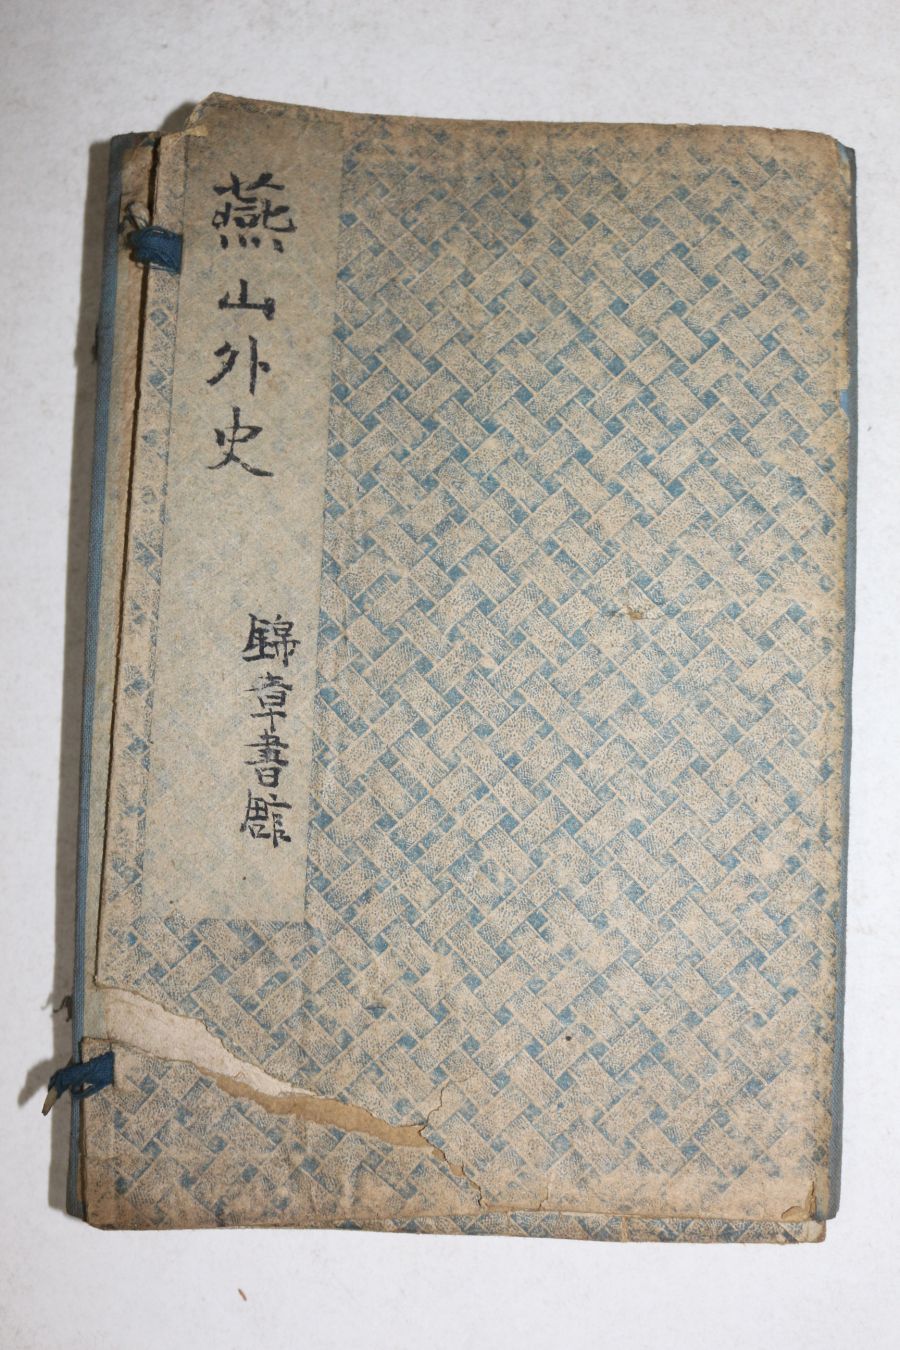 燕山外史
錦章書館